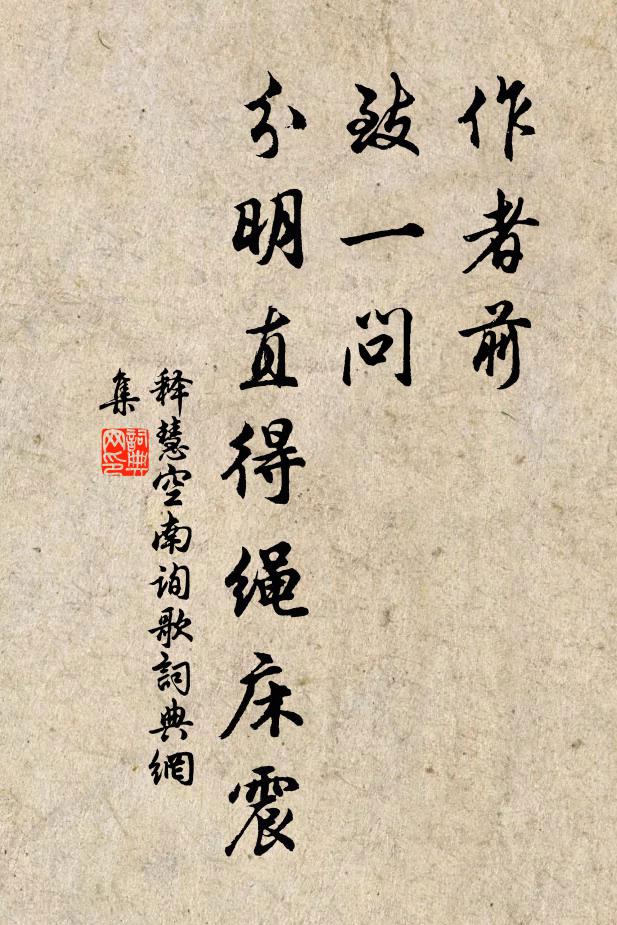 作者前
致一问
分明直得绳床震
释慧空南询歌詞典網
集
詞典
网印